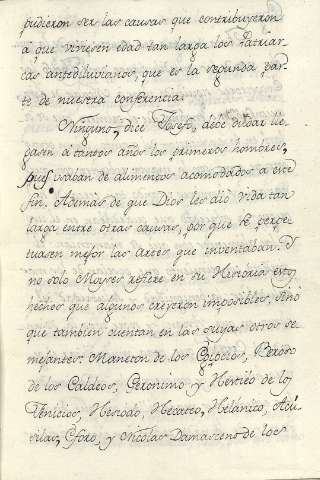 pudieron ser las causas que contribuyeron
a que viviesen edad tan larga los Patriar-
cas antediluvianos, que es la segunda par-
te de nuestra conferencia.
Ninguno, dice Josefo, debe dudar lle-
gasen à tantos años los primeros hombres,
pues usaban de alimentos acomodados a este
fin. Ademas de que Dios les dió vida tan
larga entre otras causas, por que se perpe-
tuasen mejor las artes que inventaban. Y
no solo Moyses refiere en su Historia estos
hechos que algunos creyeron imposibles, sinó
que tambien cuentan en las suyas otros se-
mejantes: Maneton de los Egipcios, Beroso
de los Caldeos, Geronimo y Hestieo de los
Fenicios, Hesiodo, Hecateo, Helánico, Acú-
silas, Eforo, y Nicolas Damasceno de los